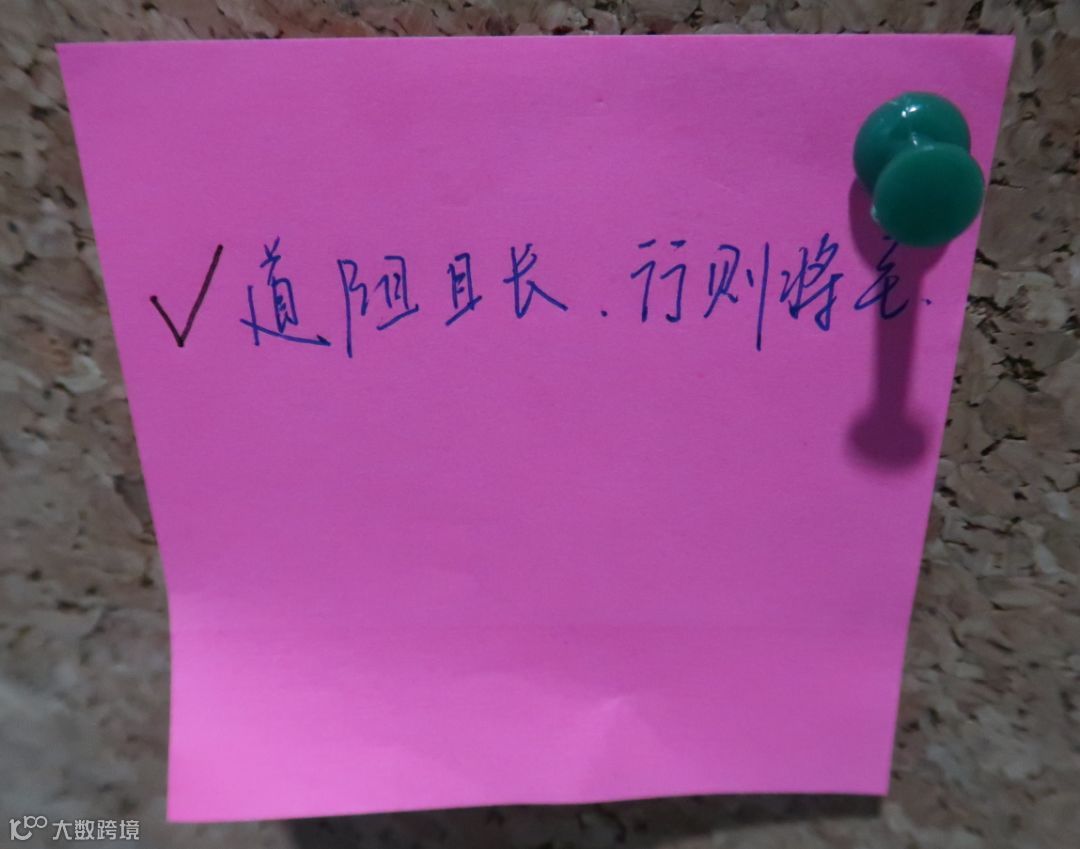 ✓道阻且长.行则将至.
大数跨境